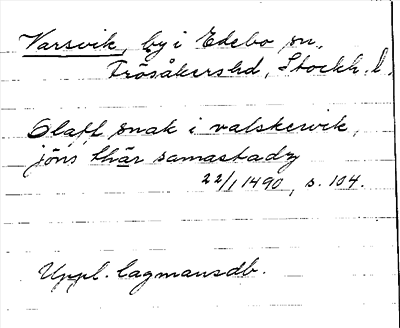 Varsvik, by i Edebo sn,
Frösåkershd, Stockh. l.
Olaff snak i valskervik,
jöns thär samastadz
22/1 1490, s. 104.
Uppl. lagmansdb.